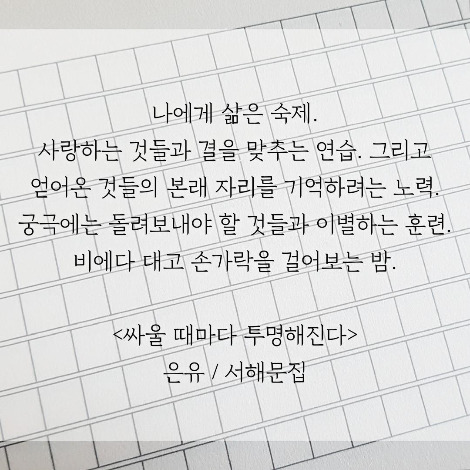 나에게 삶은 숙제.
사랑하는 것들과 결을 맞추는 연습. 그리고
얻어온 것들의 본래 자리를 기억하려는 노력.
궁극에는 돌려보내야 할 것들과 이별하는 훈련.
비에다 대고 손가락을 걸어보는 밤.
<싸울 때마다 투명해진다>
은유 / 서해문집